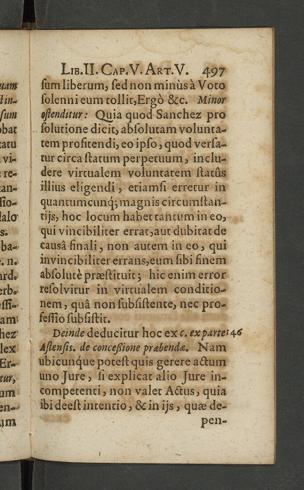 LIB. II. CAP. V. ART. V. 497
sum liberum, sed non minùs à Voto
solenni eum tollit, Ergò &c. Minor
ostenditur: Quia quod Sanchez pro
solutione dicit, absolutam volunta-
tem profitendi, eo ipso, quod versa-
tur circa statum perpetuum, inclu-
dere virtualem voluntatem statûs
illius eligendi, etiamsi erretur in
quantumcunq; magnis circumstan-
tijs, hoc locum habet tantum in eo,
qui vincibiliter errat, aut dubitat de
causâ finali, non autem in eo, qui
invincibiliter errans, eum sibi finem
absolutè præstituit; hic enim error
resolvitur in virtualem conditio-
nem, quâ non subsistente, nec pro-
fessio subsistit.
Deinde deducitur hoc ex c. ex parte: 46
Astensis. de concessione præbendæ. Nam
ubicunque potest quis gerere actum
uno Jure, si explicat alio Jure in-
competenti, non valet Actus, quia
ibi deest intentio, & in ijs, quæ de-
pen-